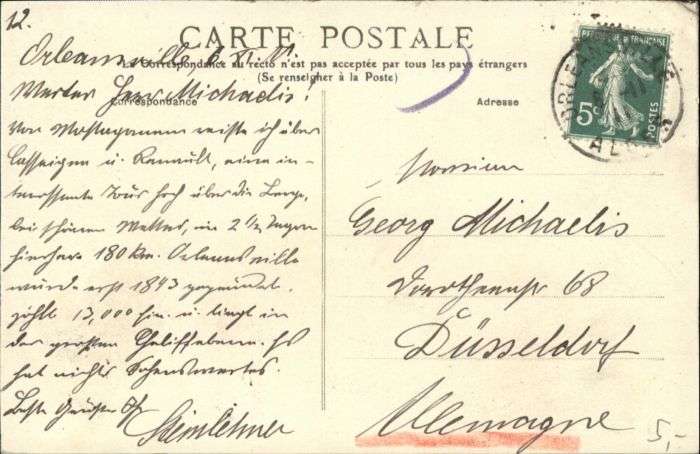 12.
CARTE POSTALE
Orleansville, 6. XI. 11.
La Correspondance au recto n'est pas acceptée par tous les pays étrangers
(Se renseigner à la Poste)
Werter Herr Michaelis!
Correspondance
Adresse
Von Mostaganem reiste ich über
Cassaigne u. Renault, eine in-
teressante Tour hoch über die Berge,
bei schönem Wetter, in 2 1/2 Tagen
hierher 180 km. Orleansville
wurde erst 1843 gegründet,
zählt 13,000 Einw. u. liegt in
der großen Cheliffebene. Es
hat nichts Sehenswertes.
Beste Grüße Ihr
Steinlehner
REPUBLIQUE FRANÇAISE
5c
POSTES
ORLEANSVILLE
ALGER
Monsieur
Georg Michaelis
Dorotheenstr 68
Düsseldorf
Allemagne
5,-